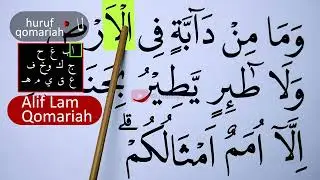 huruf
qomariah
ا ب غ ح
ج ك و خ ف
ع ق ي م ه
Alif Lam
Qomariah
وَمَا مِنْ دَآبَّةٍ فِى الْاَرْ
وَلَا طٰٓئِرٍ يَّطِيْرُ بِجَنَ
اِلَّآ اُمَمٌ اَمْثَالُكُمْ ۗ